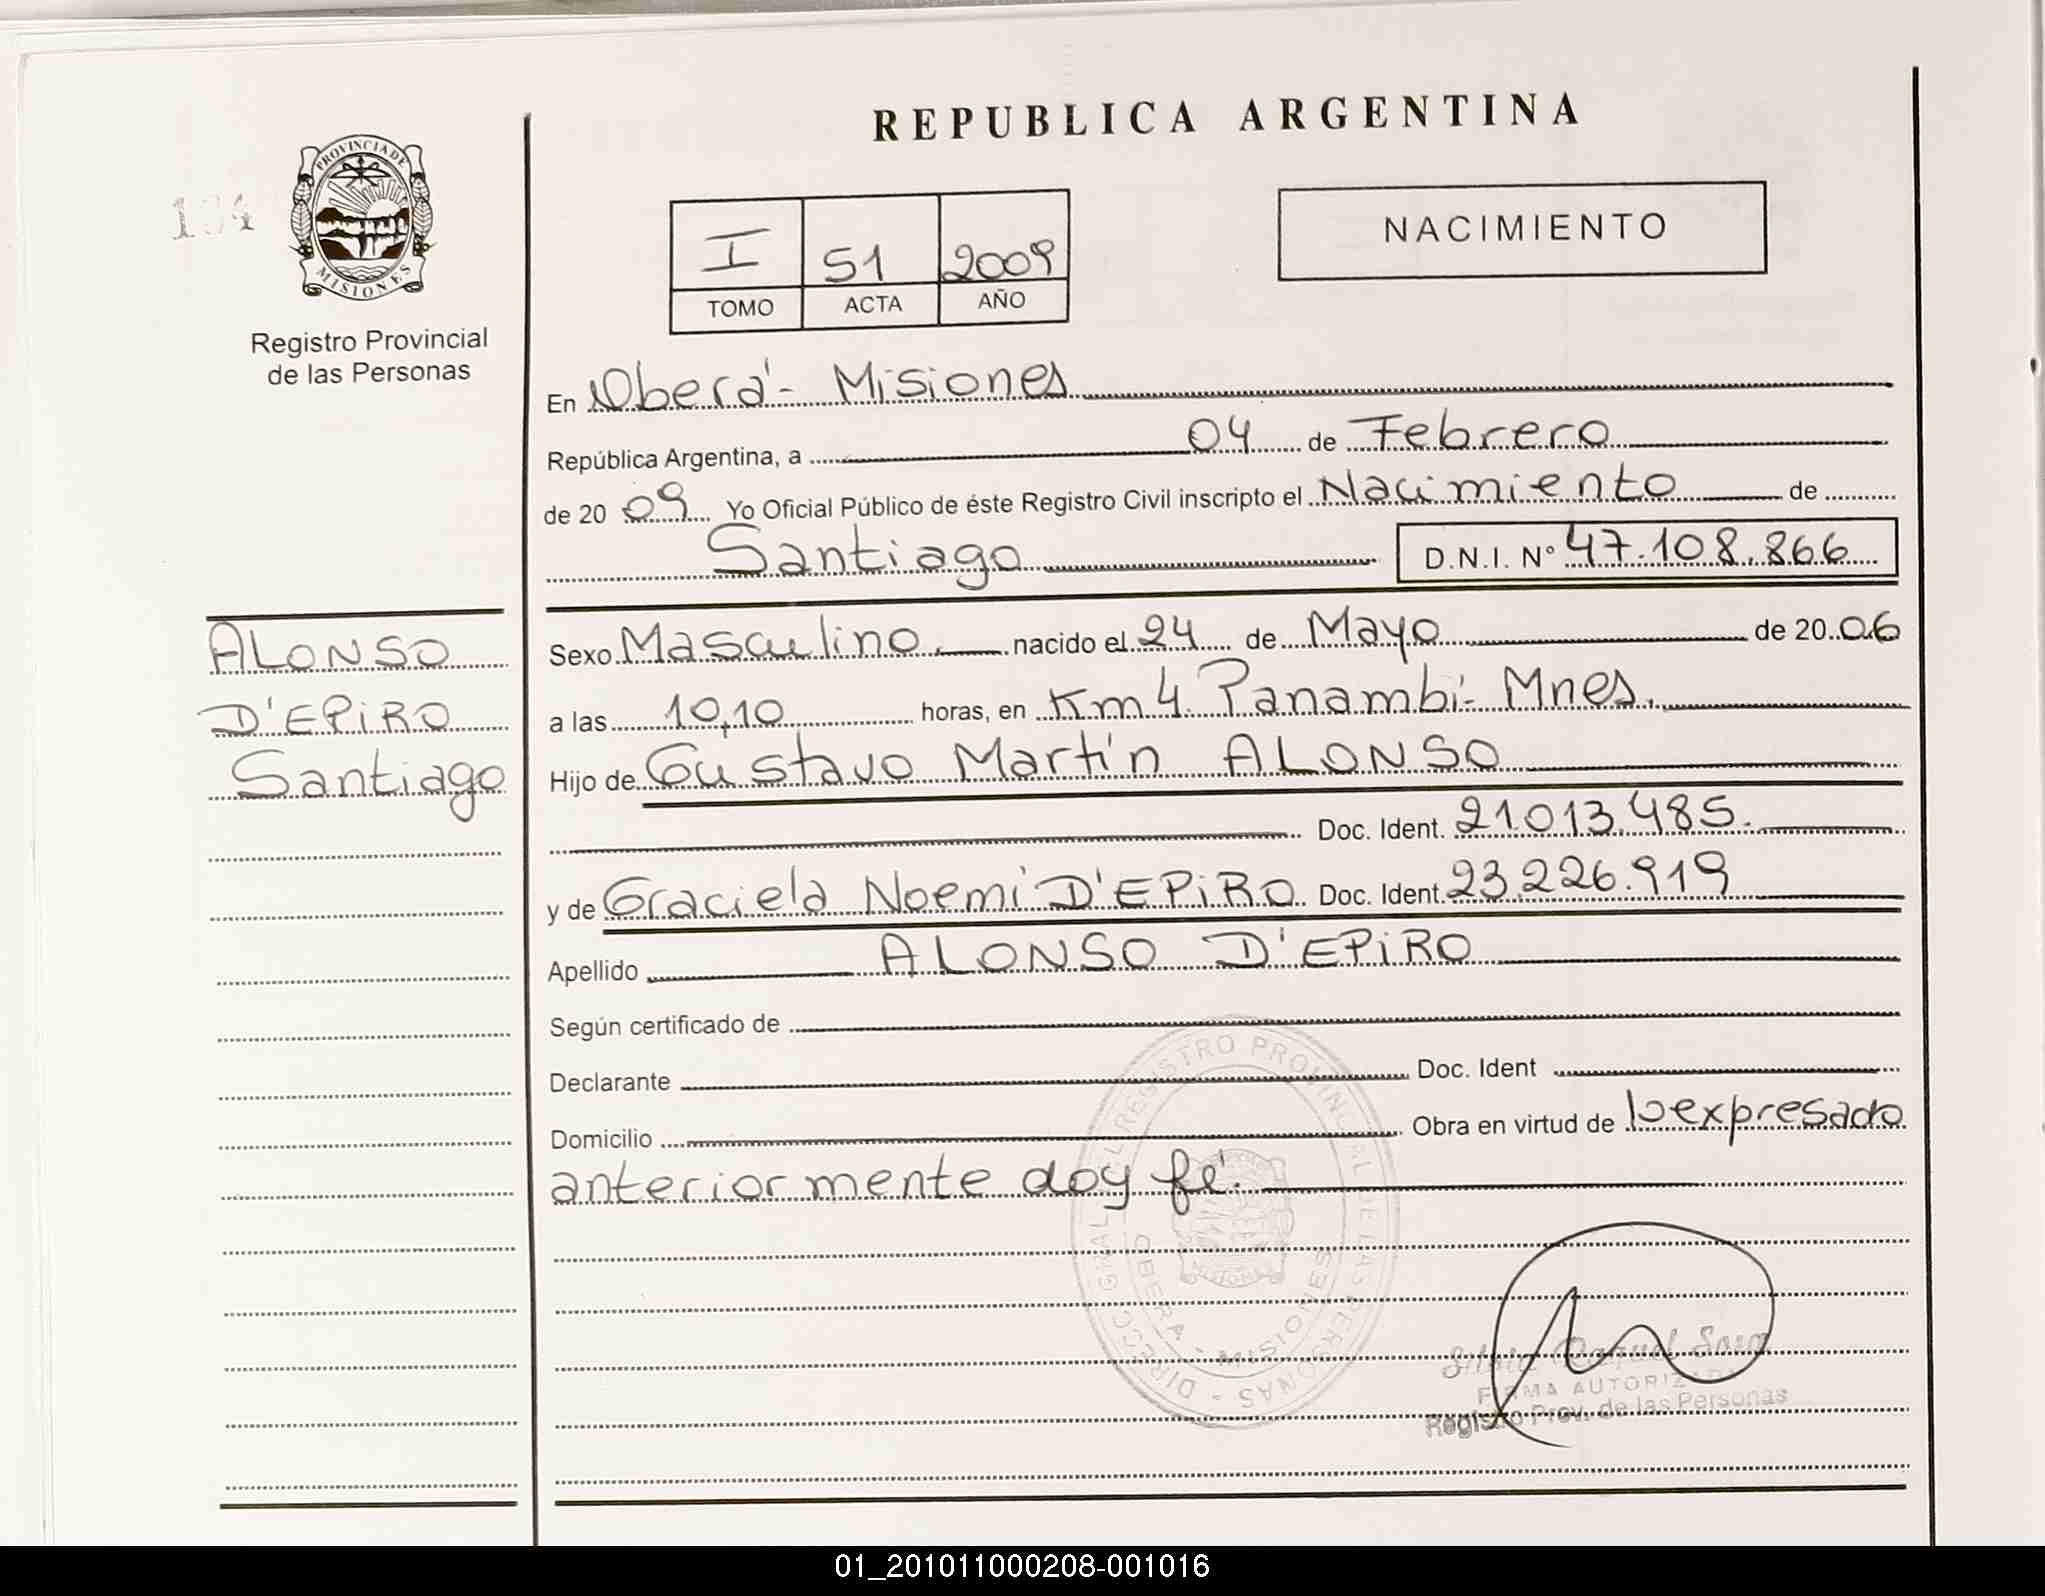 REPUBLICA ARGENTINA
PROVINCIA DE
MISIONES
Registro Provincial
de las Personas
I 51 2009
TOMO ACTA AÑO
NACIMIENTO
En Oberá - Misiones
República Argentina, a 04 de Febrero
de 20 09 Yo Oficial Público de éste Registro Civil inscripto el Nacimiento de
Santiago D.N.I. N° 47.108.866
ALONSO
D'EPIRO
Santiago
Sexo Masculino nacido el 24 de Mayo de 20 06
a las 10,10 horas, en Km 4. Panambí - Mnes.
Hijo de Gustavo Martín ALONSO
Doc. Ident. 21.013.485.
y de Graciela Noemí D'EPIRO Doc. Ident. 23.226.919
Apellido ALONSO D'EPIRO
Según certificado de
Declarante Doc. Ident
Domicilio Obra en virtud de lo expresado
anteriormente doy fé.
DIRECC. GRAL. DEL REGISTRO PROVINCIAL DE LAS PERSONAS
OBERA - MISIONES
Silvia Raquel Sosa
FIRMA AUTORIZADA
Registro Prov. de las Personas
01_201011000208-001016